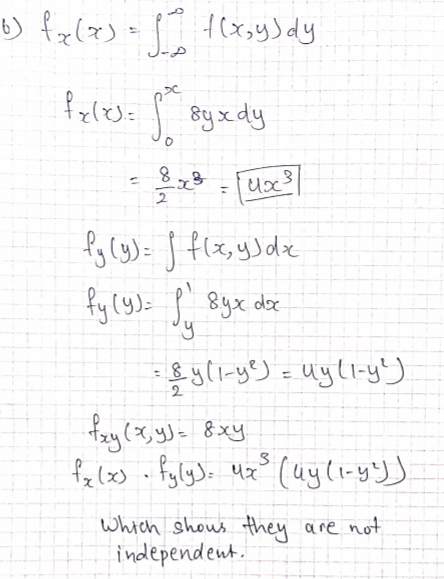 b) fx(x) = ∫_{-∞}^{∞} f(x,y)dy
fx(x) = ∫_0^x 8yx dy
= 8/2 x³ = 4x³
fy(y) = ∫ f(x,y)dx
fy(y) = ∫_y^1 8yx dx
= 8/2 y(1-y²) = 4y(1-y²)
fxy(x,y) = 8xy
fx(x) . fy(y) = 4x³(4y(1-y²))
Which shows they are not
independent.